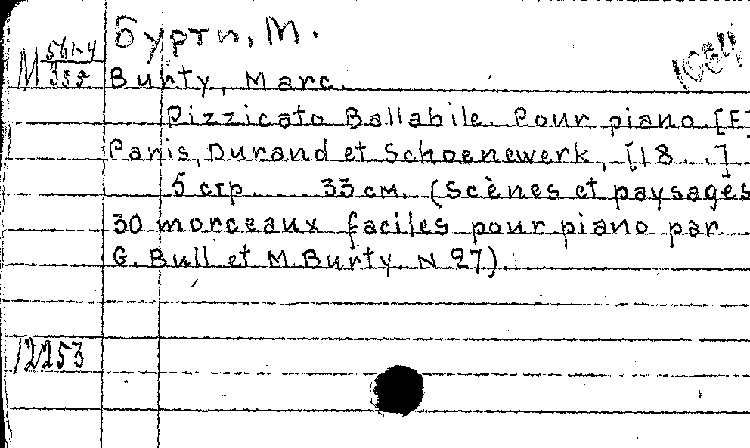 Бурти, М.
М 561-4
355
Burty, Marc.
1064
Pizzicato Ballabile. Pour piano. [F]
Paris, Durand et Schoenewerk, [18...]
5 стр. 33 см. (Scènes et paysages
30 morceaux faciles pour piano par
G. Bull et M. Burty. N 27).
12253